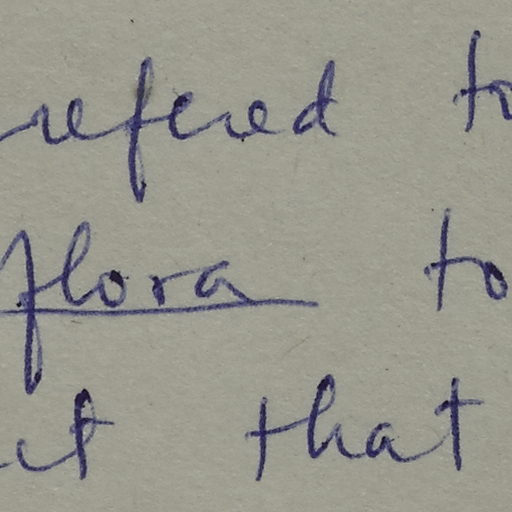 refered to
flora to
ct that